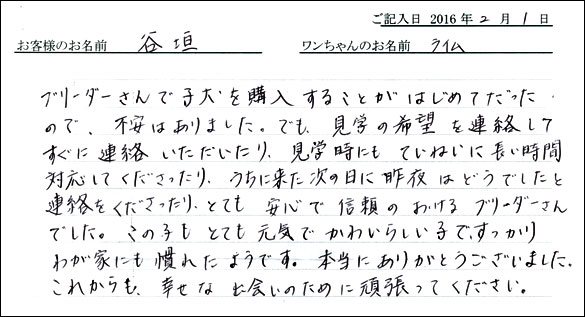 ご記入日 2016年2月1日
お客様のお名前 谷垣 ワンちゃんのお名前 ライム
ブリーダーさんで子犬を購入することがはじめてだった
ので、不安はありました。でも、見学の希望を連絡して
すぐに連絡いただいたり、見学時にもていねいに長い時間
対応してくださったり、うちに来た次の日に昨夜はどうでしたと
連絡をくださったり、とても安心で信頼のおけるブリーダーさん
でした。この子もとても元気でかわいらしい子で、すっかり
わが家にも慣れたようです。本当にありがとうございました。
これからも、幸せな出会いのために頑張ってください。